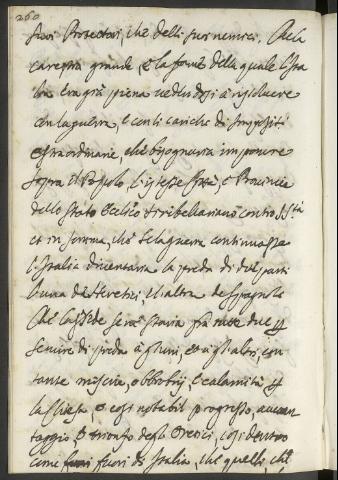 260
suoi Protettori, che delli suoi nemici. Che la
carestia grande, e la fame della quale l'Ita
lia era già piena vedendosi
con la guerra, e conti cariche di
straordinarie, che bisognava imponere
sopra il Popolo, l'istesse Città, e Provincie
dello stato Eccl.co si ribellariano contro S. S.tà
et in somma, che se la guerra continuasse
l'Italia diventaria la preda di due parti
l'una de Heretici, et l'altra de Spagnoli
che la S. Sede se ne staria frà due
servire di preda à gl'uni, et à gl'altri, con
tante miserie, obbrobrij, e calamità
la Chiesa, e così notabil progresso, avan
taggio, e trionfo degl'Eretici, così dentro
come fuori di Italia, che quelli, che